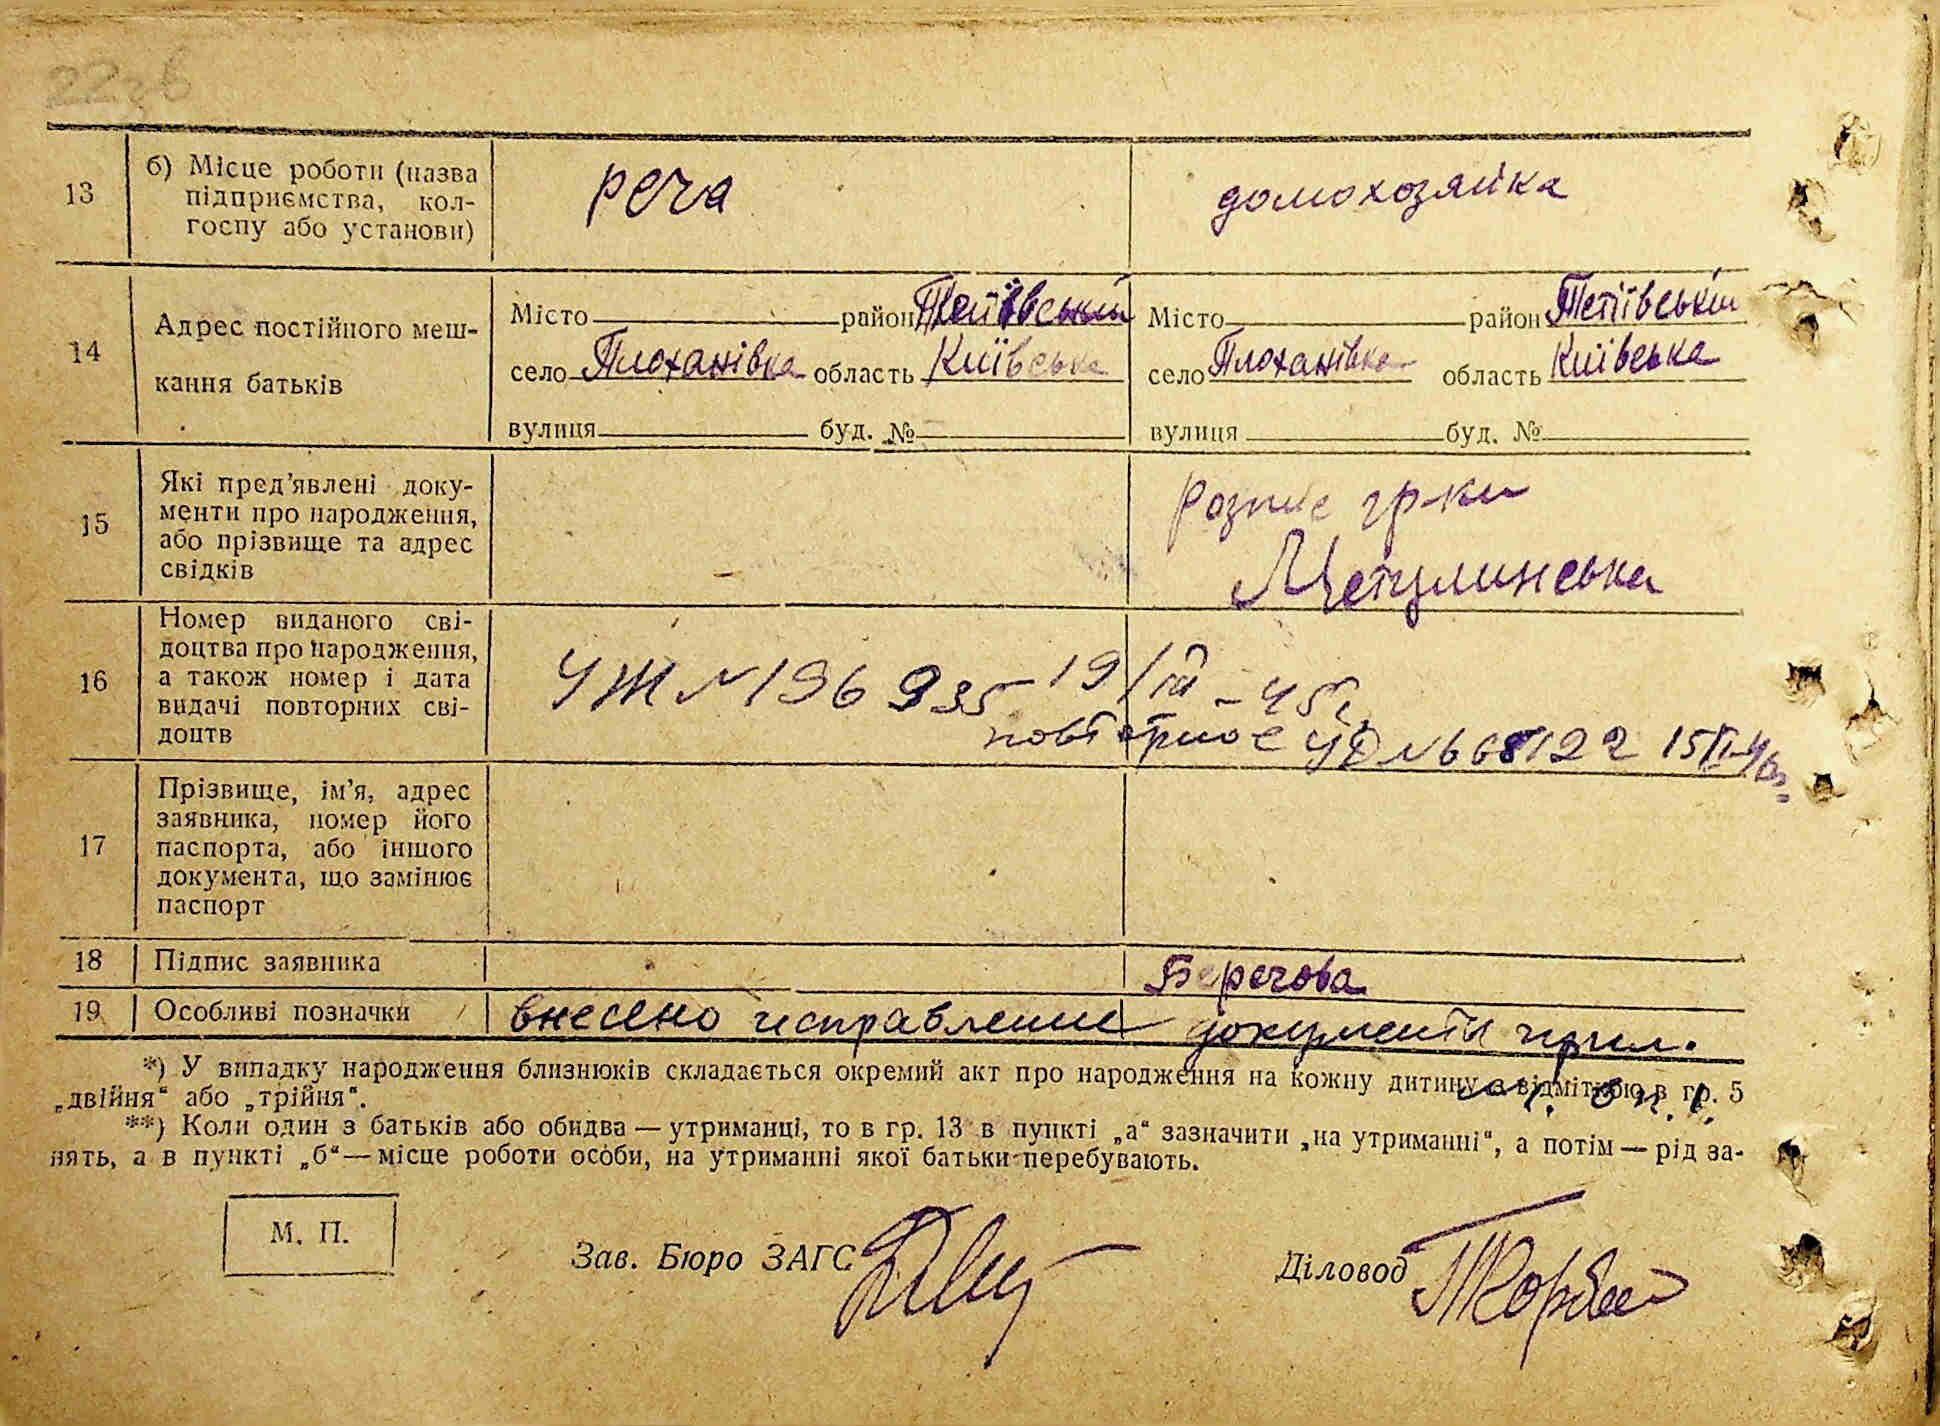 13
б) Місце роботи (назва
підприємства, кол-
госпу або установи)
домохозяйка
14
Адрес постійного меш-
кання батьків
Місто район Тетіївський
село Плоханівка область Київська
вулиця буд. №
Місто район Тетіївський
село Плоханівка область Київська
вулиця буд. №
15
Які пред'явлені доку-
менти про народження,
або прізвище та адрес
свідків
розпис гр-ки
16
Номер виданого сві-
доцтва про народження,
а також номер і дата
видачі повторних сві-
доцтв
УЖ № 196935 19/III-45г.
повторное УД № 668122 15/II-46г.
17
Прізвище, ім'я, адрес
заявника, номер його
паспорта, або іншого
документа, що замінює
паспорт
18
Підпис заявника
19
Особливі позначки
внесено исправление документы прил.
*) У випадку народження близнюків складається окремий акт про народження на кожну дитину з відміткою в гр. 5
„двійня“ або „трійня“.
**) Коли один з батьків або обидва — утриманці, то в гр. 13 в пункті „а“ зазначити „на утриманні“, а потім — рід за-
нять, а в пункті „б“ — місце роботи особи, на утриманні якої батьки перебувають.
М. П.
Зав. Бюро ЗАГС
Діловод